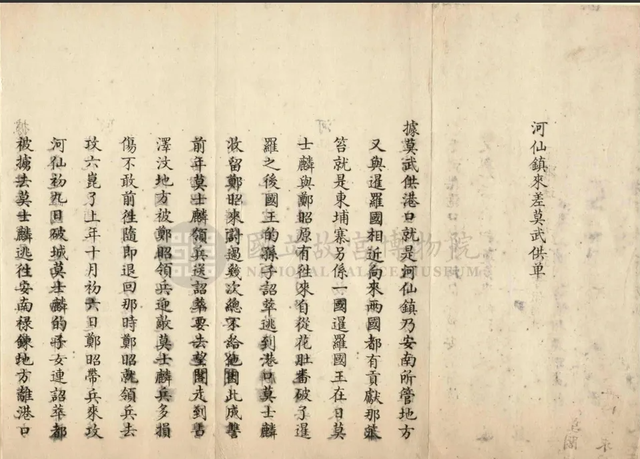 河仙鎮來差莫武供单
據莫武供港口就是河仙鎮乃安南所管地方
又與暹羅國相近向來兩國都有貢獻那萊
笞就是東埔寨另係一國暹羅國王在日莫
士麟與鄭昭原有往來自從花肚番破了暹
羅之後國王的孫子詔萃逃到港口莫士麟
收留鄭昭來討過幾次總不給他因此成讐
前年莫士麟領兵送詔萃要去望閣走到
澤汶地方被鄭昭領兵迎敵莫士麟兵多損
傷不敢前往隨即退回那時鄭昭就領兵去
攻六崑了上年十月初六日鄭昭帶兵來攻
河仙初九日破城莫士麟的子女連詔萃都
被擄去莫士麟逃往安南祿鍊地方離港口
國立故宮博物院
NATIONAL PALACE MUSEUM